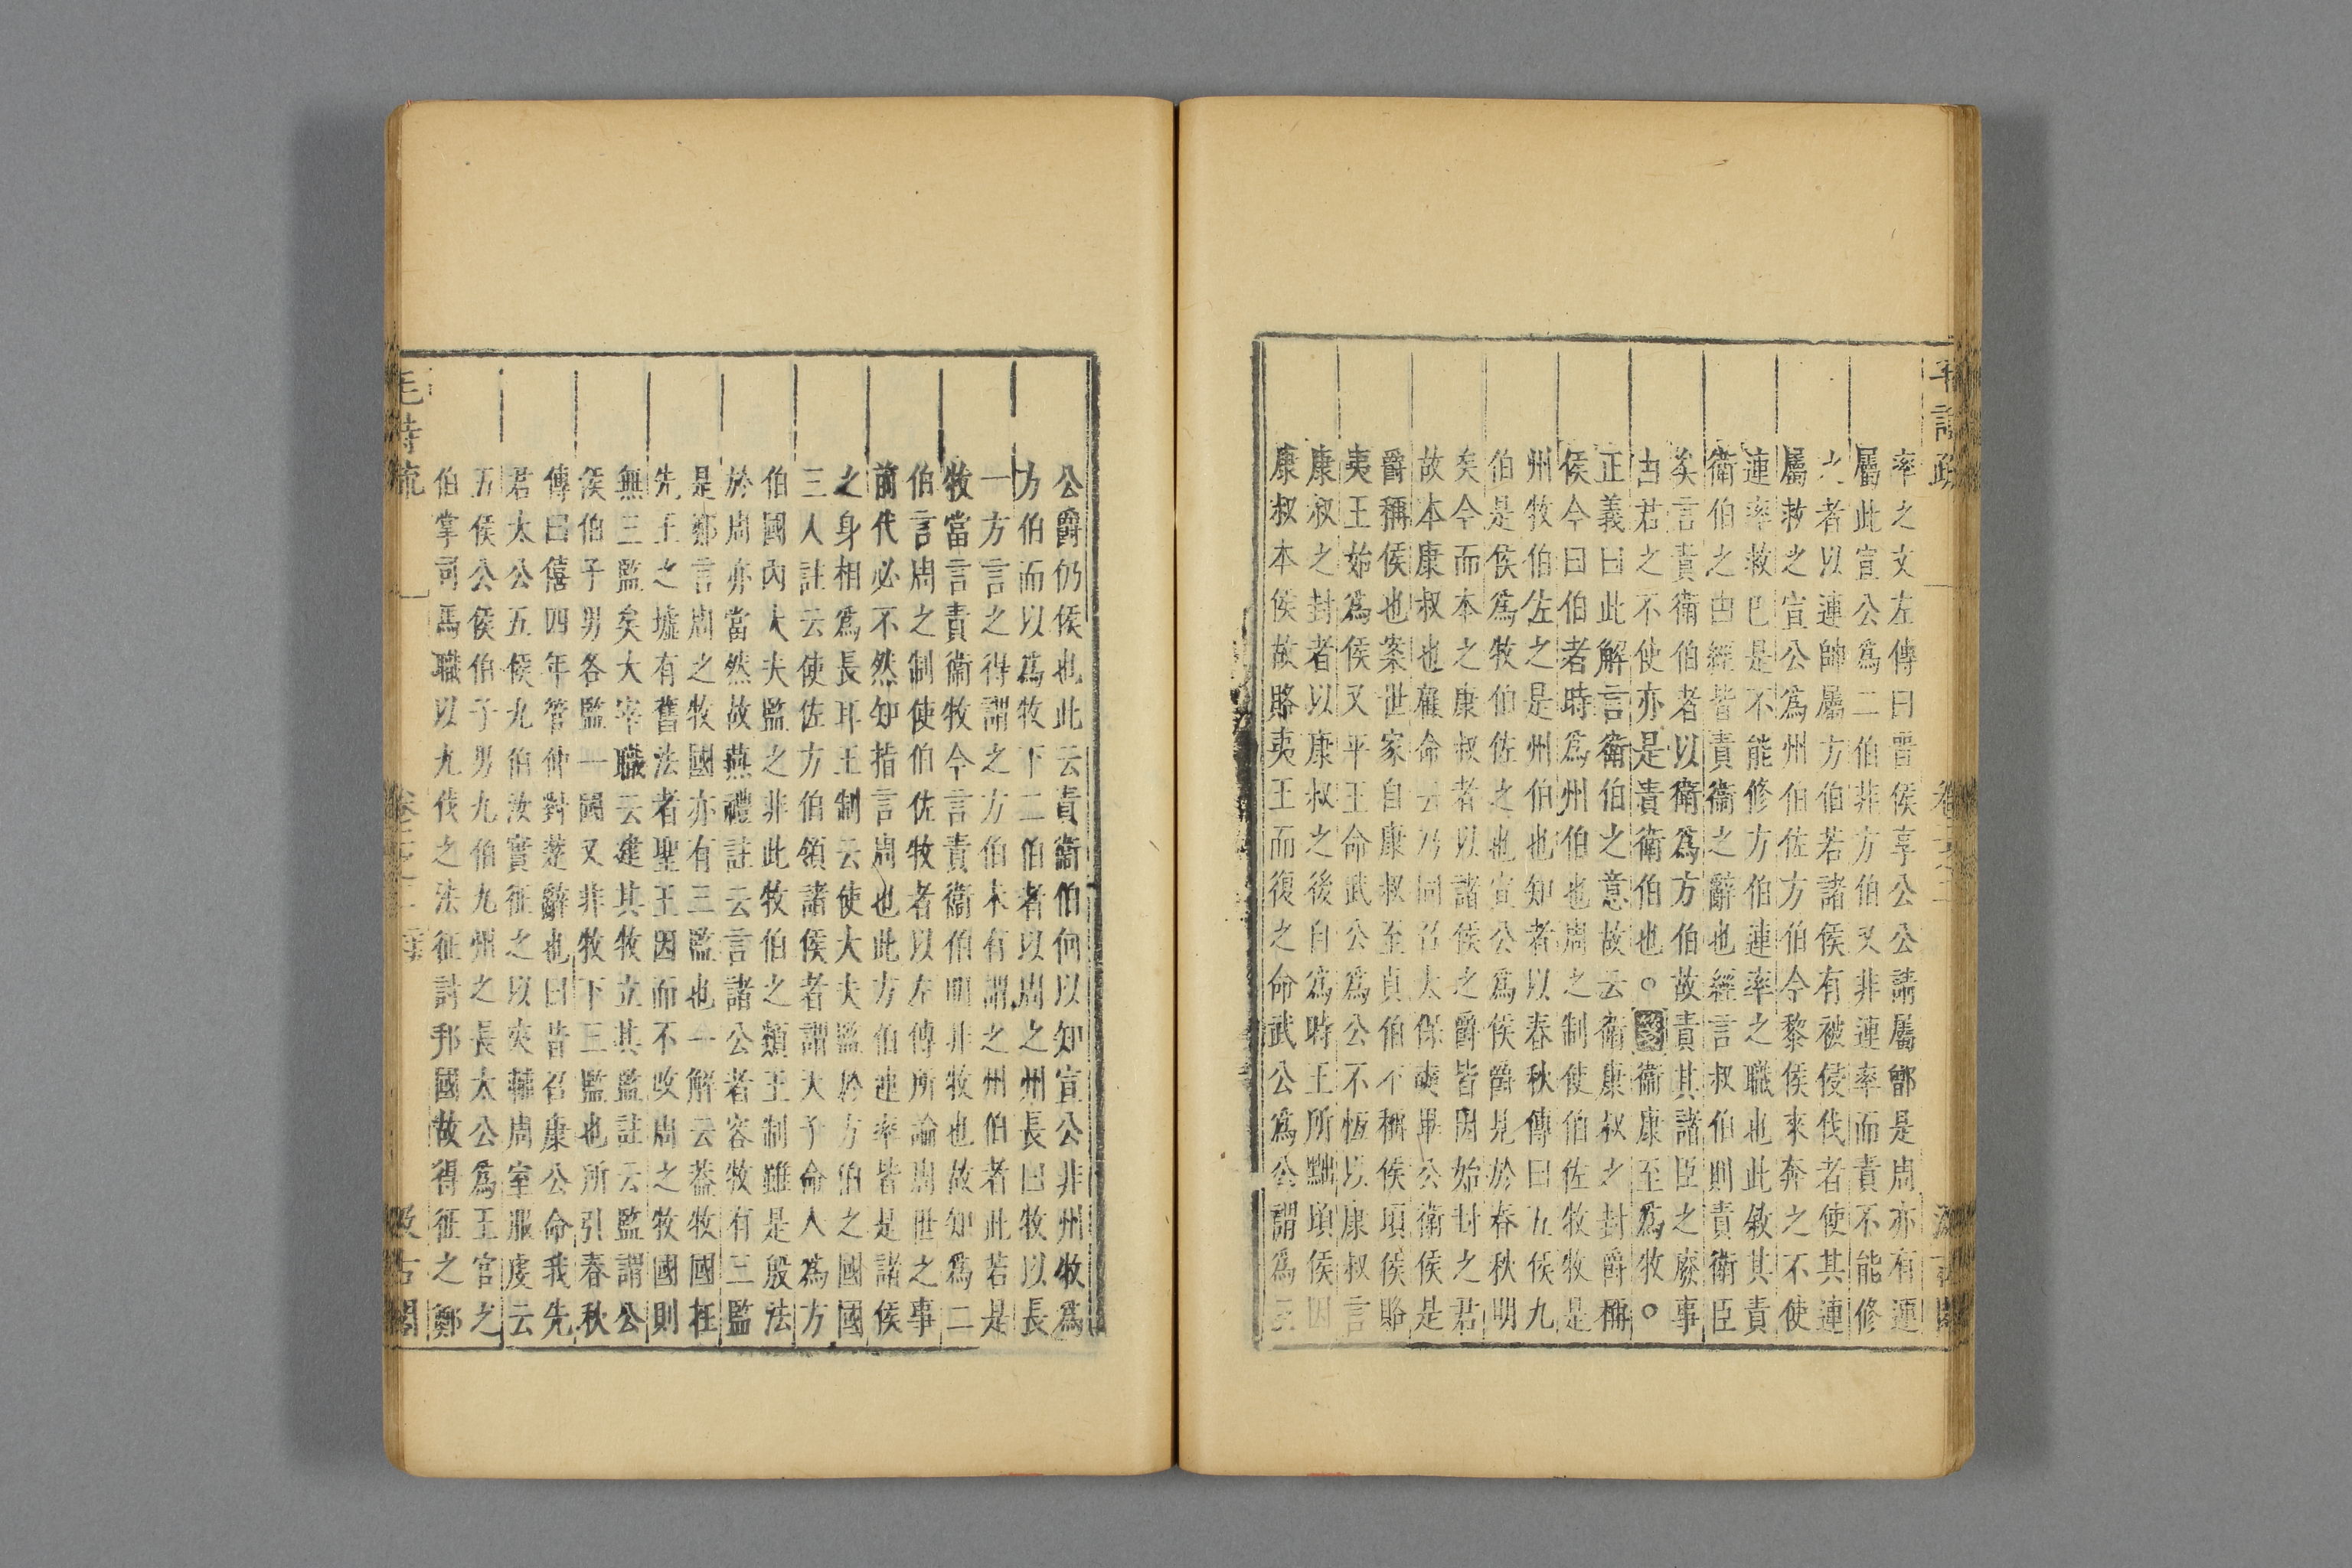 率之文左傳曰晋侯享公公請屬鄫是周亦有連
屬此宣公爲二伯非方伯又非連率而責不能修
之者以連帥屬方伯若諸侯有被侵伐者使其連
屬救之宣公爲州伯佐方伯今黎侯來奔之不使
連率救巳是不能修方伯連率之職也此敘其責
衛伯之由經皆責衞之辭也經言叔伯則責衛臣
矣言責衛伯者以衛爲方伯故責其諸臣之廢事
由君之不使亦是責衛伯也○箋衞康至爲牧○
正義曰此解言衛伯之意故云衛康叔之封爵稱
侯今曰伯者時爲州伯也周之制使伯佐牧牧是
州牧伯佐之是州伯也知者以春秋傳曰五侯九
伯是侯爲牧伯佐之也宣公爲侯爵見於春秋明
矣今而本之康叔者以諸侯之爵皆因始封之君
故本康叔也顧命云乃同召太保奭畢公衛侯是
爵稱侯也案世家自康叔至貞伯不稱侯頃侯賂
夷王始爲侯又平王命武公爲公不恆以康叔言
康叔之封者以康叔之後自爲時王所黜頃侯因
康叔本侯故賂夷王而復之命武公爲公謂爲三
公爵仍侯也此云責衞伯何以知宣公非州牧爲
方伯而以爲牧下二伯者以周之州長曰牧以長
一方言之得謂之方伯未有謂之州伯者此若是
牧當言責衞牧今言責衞伯明非牧也故知爲二
伯言周之制使伯佐牧者以左傳所論周世之事
前代必不然知指言周也此方伯連率皆是諸侯
之身相爲長耳王制云使大夫監於方伯之國國
三人註云使佐方伯領諸侯者謂天子命人爲方
伯國內大夫監之非此牧伯之類王制雖是殷法
於周亦當然故燕禮註云言諸公者容牧有三監
是鄭言周之牧國亦有三監也一解云葢牧國在
先王之墟有舊法者聖王因而不改周之牧國則
無三監矣大宰職云建其牧立其監註云監謂公
侯伯子男各監一國又非牧下三監也所引春秋
傳曰僖四年管仲對楚辭也曰昔召康公命我先
君太公五侯九伯汝實征之以夾輔周室服虔云
五侯公侯伯子男九伯九州之長太公爲王官之
伯掌司馬職以九伐之法征討邦國故得征之鄭
毛詩疏 卷二之二 汲古閣